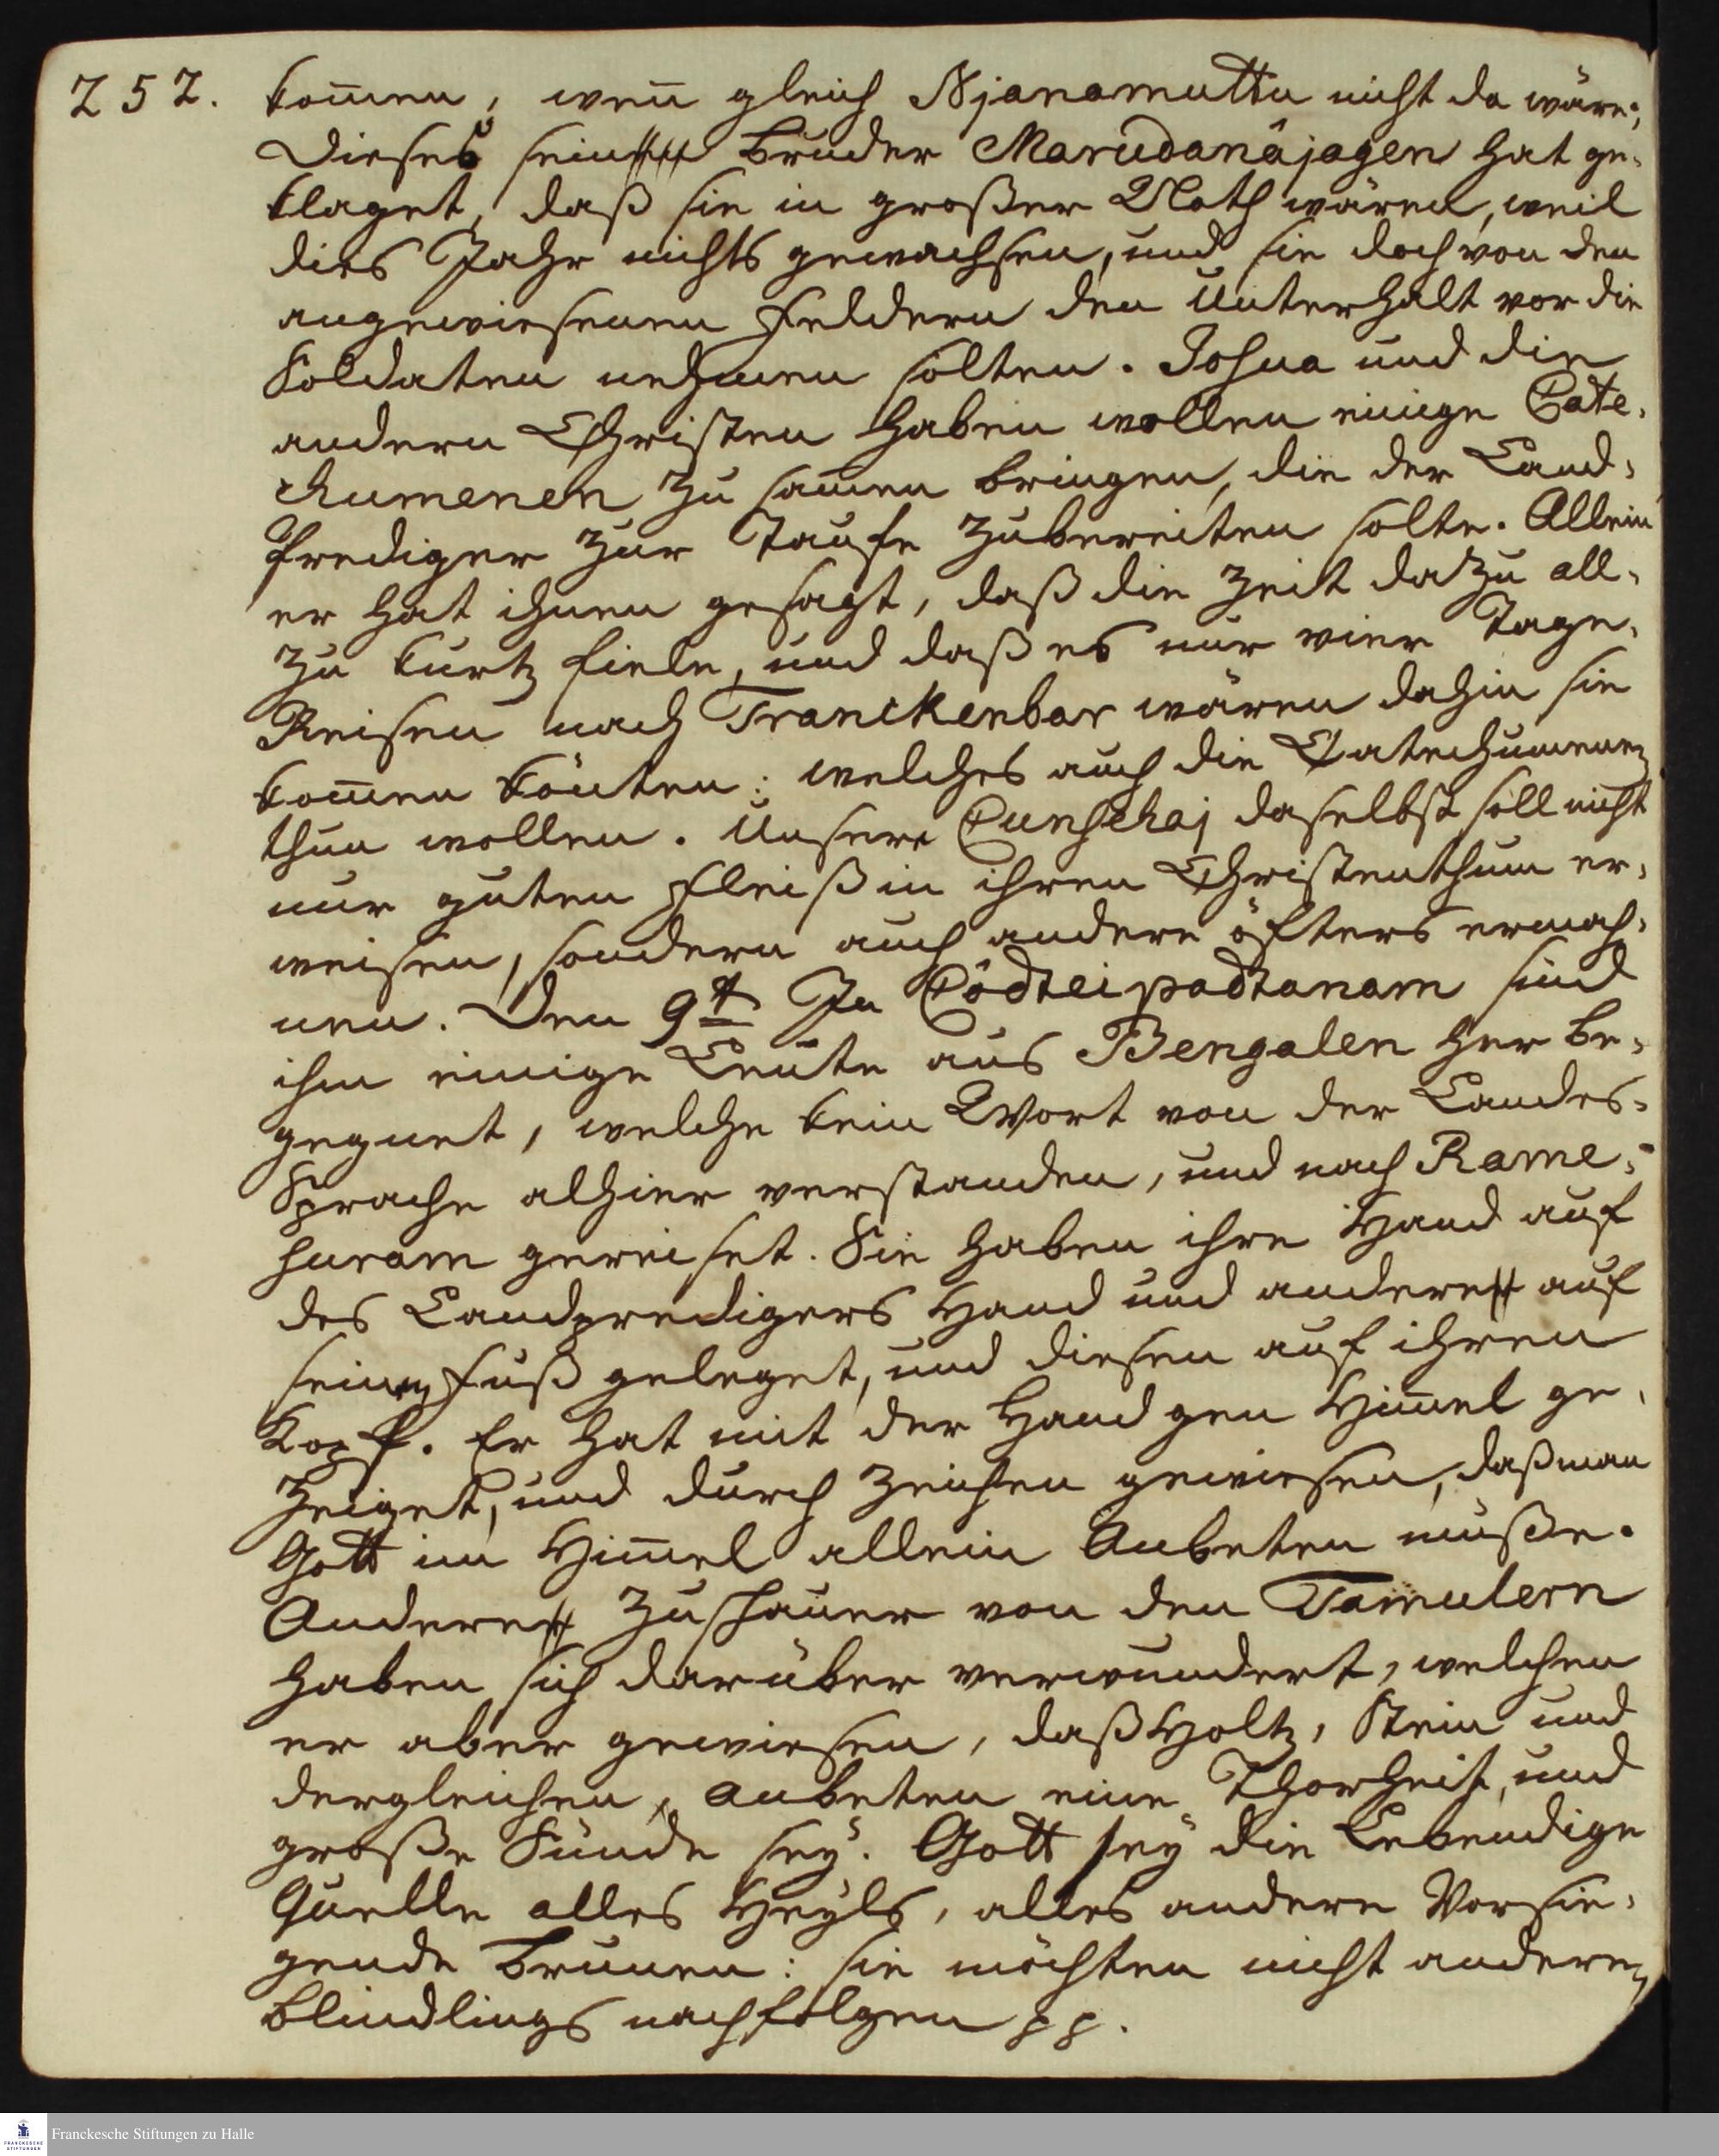 252. kom̄en, wen̄ gleich Njanamuttu nicht da wäre;
Dieses sein Bruder Marudanâjagen hat ge-
klaget, daß sie in großer Noth wären, weil
dies Jahr nichts gewachsen, und sie doch von den
angewiesenen Feldern den Unterhalt vor die
Soldaten nehmen solten. Josua und die
andern Christen haben wollen einige Cate-
chumenen zu sam̄en bringen, die der Land-
Prediger zur Taufe zubereiten solte. Allein
er hat ihnen gesagt, daß die Zeit dazu all-
zu kurtz fiele, und daß es nur vier Tage-
Reisen nach Tranckenbar wären dahin sie
kom̄en könten: welches auch die Catechumenen
thun wollen. Unsere Cunschej daselbst soll nicht
nur guten Fleiß in ihren Christenthum er-
weisen, sondern auch andere öfters ermah-
nen. Den 9t In Côdteipadtanam sind
ihm einige Leute aus Bengalen her be-
gegnet, welche kein Wort von der Landes-
Sprache alhier verstanden, und nach Rame-
suram gereiset. Sie haben ihre Hand auf
des Landpredigers Hand und andere auf
seinen Fuß geleget, und diesen auf ihren
Kopf. Er hat mit der Hand gen Him̄el ge-
zeiget, und durch Zeichen gewiesen, daß man
Gott im Him̄el allein Anbeten müße.
Andere Zuschauer von den Tamulern
haben sich darüber verwundert, welchen
er aber gewiesen, daß Holtz, Stein und
dergleichen, anbeten eine Thorheit, und
große Sünde sey. Gott sey die Lebendige
Quelle alles Heyls, alles andere Versie-
gende Brunnen: sie möchten nicht anderen
blindlings nachfolgen pp.
Franckesche Stiftungen zu Halle
FRANCKESCHE
STIFTUNGEN